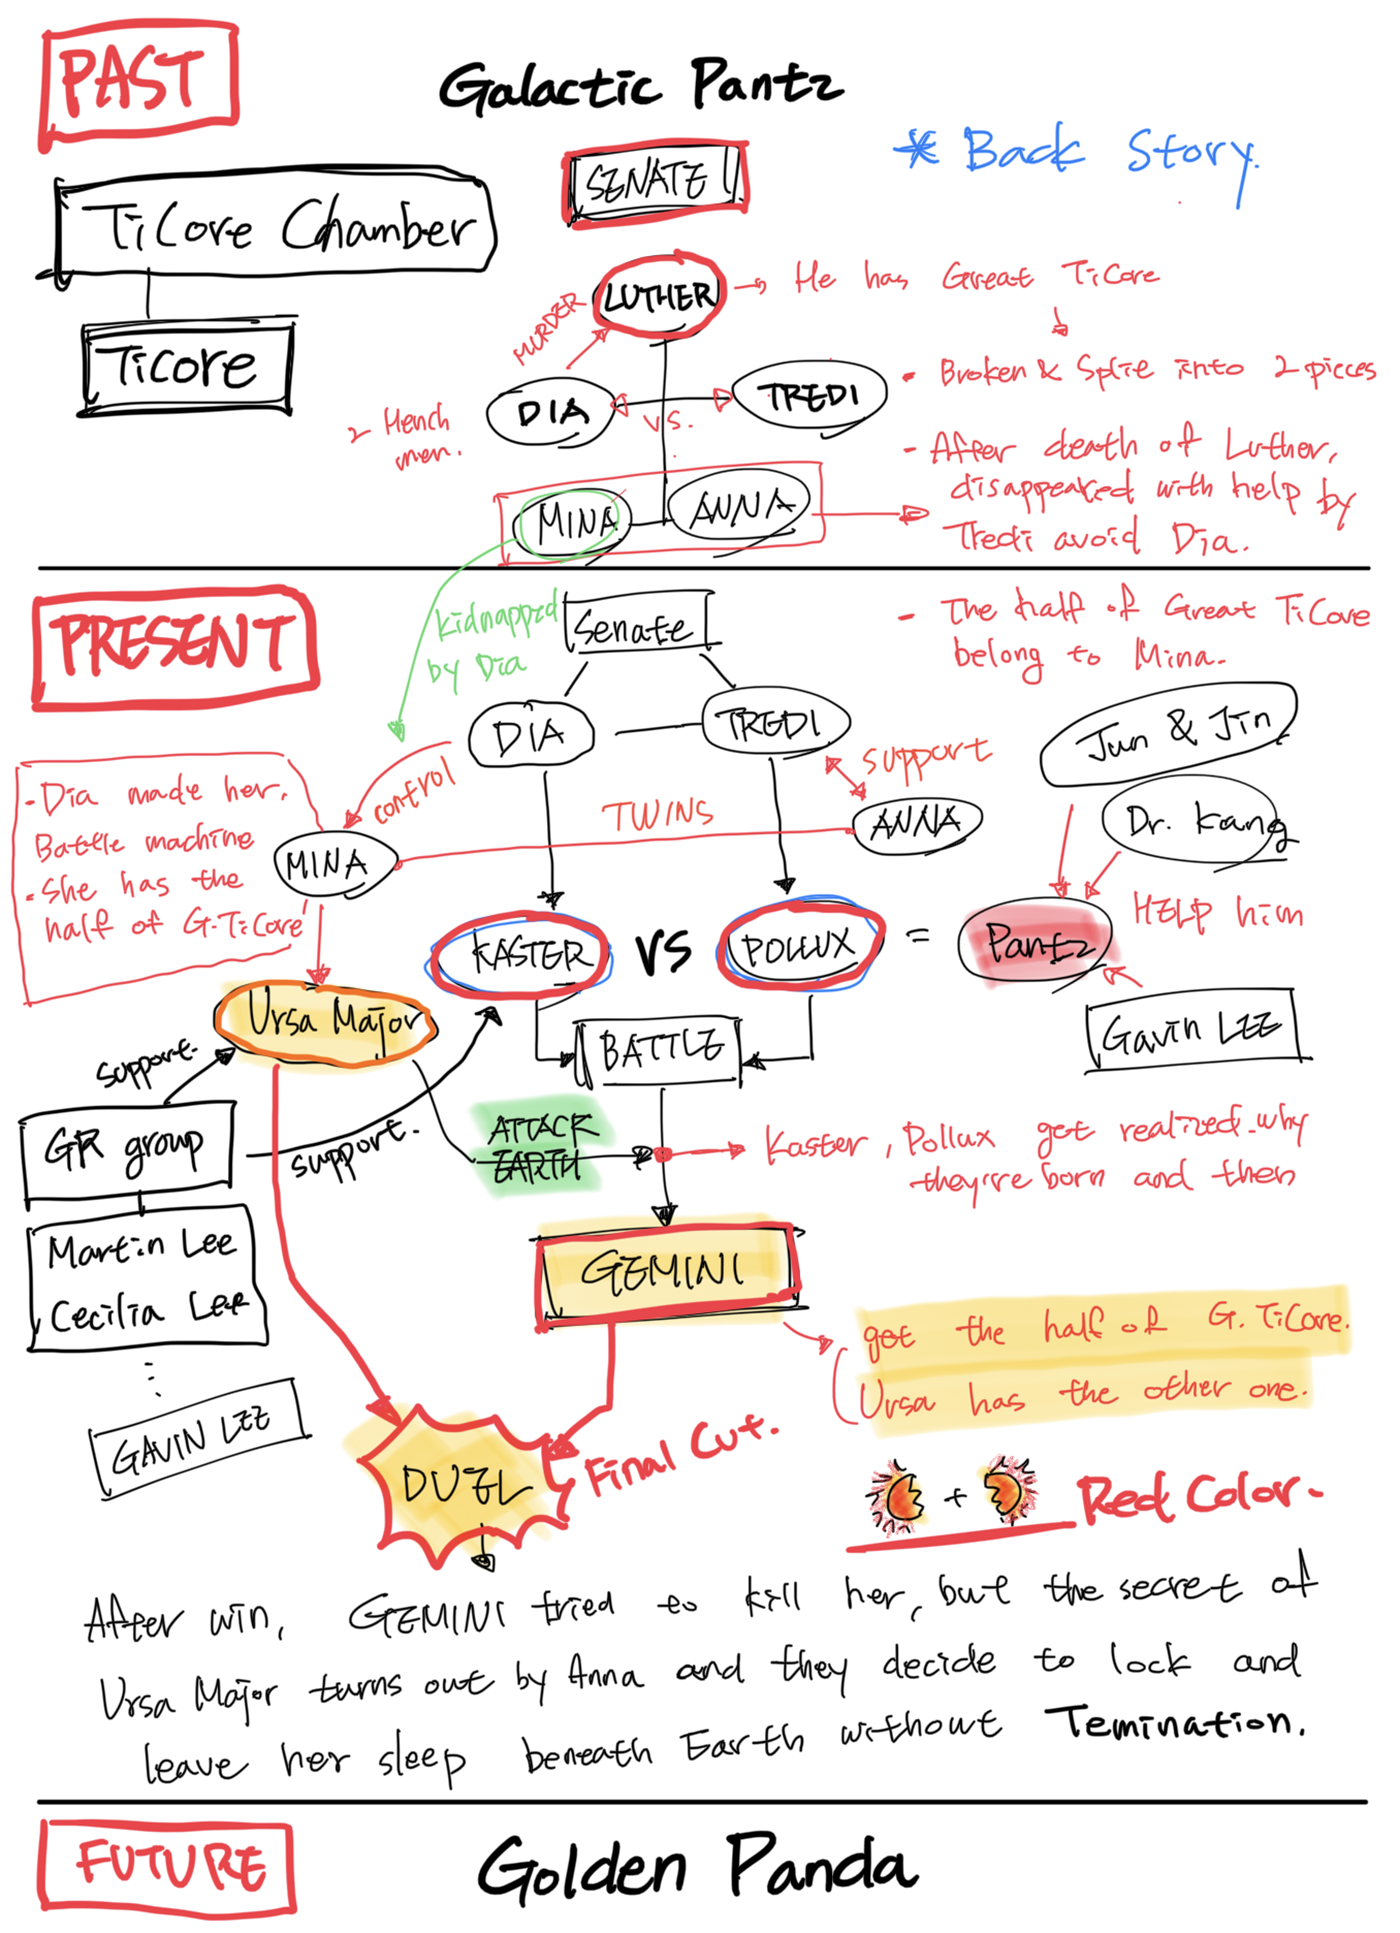 PAST
Galactic Pantz
* Back Story.
SENATE
TiCore Chamber
Ticore
LUTHER
He has Great TiCore
MURDER
DIA
VS.
TREDI
2 Hench
men.
- Broken & Splie into 2 pieces
- After death of Luther,
disappeared with help by
Tredi avoid Dia.
MINA
ANNA
PRESENT
kidnapped
by Dia
Senate
- The half of Great TiCore
belong to Mina.
DIA
TREDI
Jun & Jin
support
control
TWINS
ANNA
Dr. Kang
- Dia made her,
Battle machine
- She has the
half of G.TiCore
MINA
HELP him
KASTER
VS
POLLUX
=
Pantz
Ursa Major
Gavin LEE
BATTLE
support.
GR group
support.
ATTACK
EARTH
Kaster, Pollux get realized why
they're born and then
Martin Lee
Cecilia Lee
GEMINI
get the half of G. TiCore.
Ursa has the other one.
GAVIN LEE
DUEL
Final Cut.
+
Red Color.
After win, GEMINI tried to kill her, but the secret of
Ursa Major turns out by Anna and they decide to lock and
leave her sleep beneath Earth without Temination.
FUTURE
Golden Panda